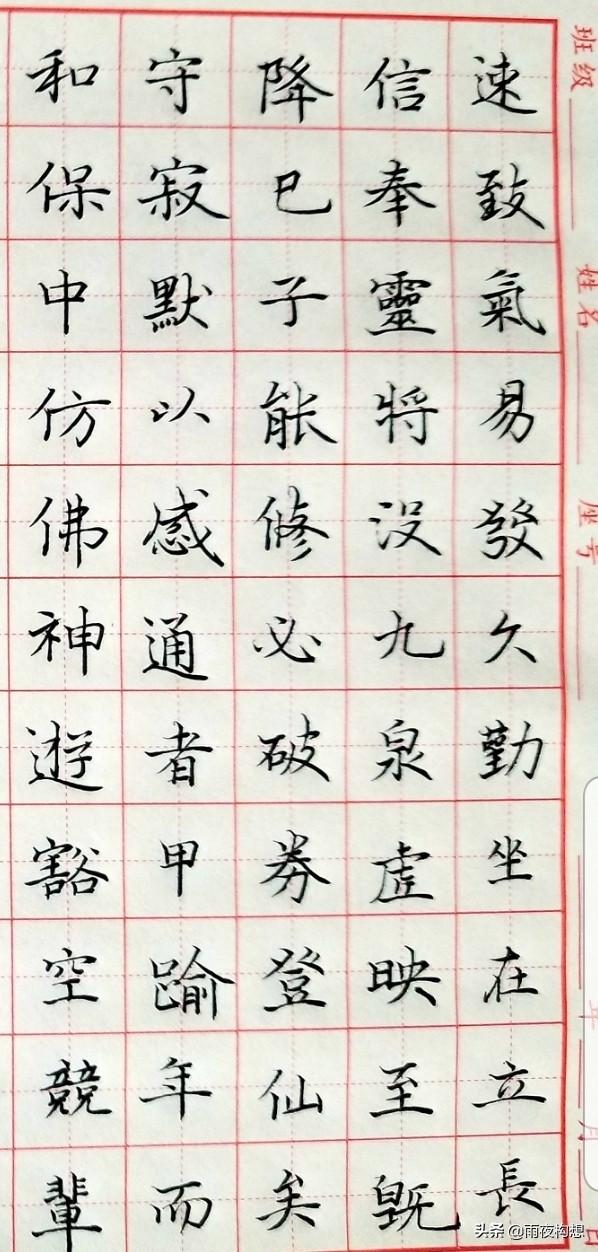 班级 姓名 座号 年 月 日
速致氣易發久勤坐在立長
信奉靈將没九泉虛映至既
降巳子能修必破券登仙矣
守寂默以感通者甲踰年而
和保中仿佛神遊豁空競輩
头条 @雨夜构想